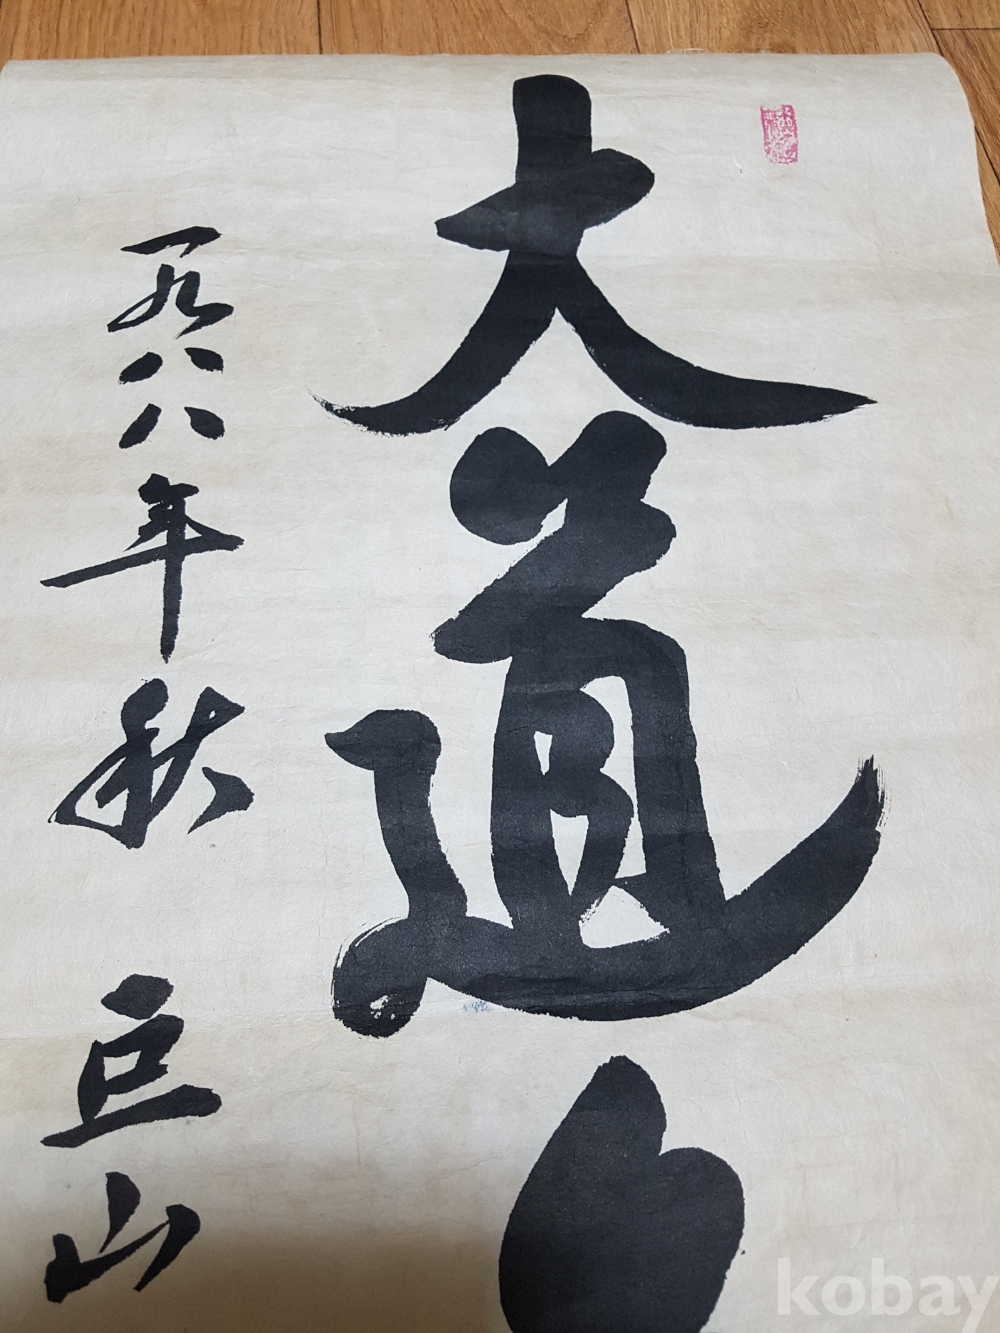 大道
一九八八年秋 巨山
kobay